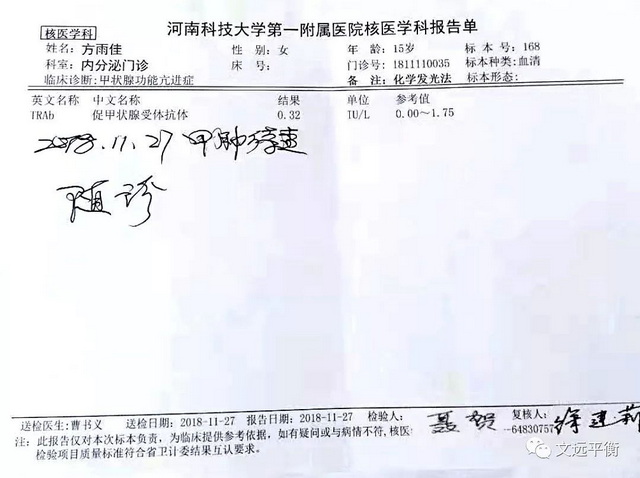 核医学科 河南科技大学第一附属医院核医学科报告单
姓名：方雨佳 性别：女 年龄：15岁 标本号：168
科室：内分泌门诊 床号： 门诊号：1811110035 标本种类：血清
临床诊断：甲状腺功能亢进症 备注：化学发光法 标本形态：
英文名称 中文名称 结果 单位 参考值
TRAb 促甲状腺受体抗体 0.32 IU/L 0.00～1.75
2018.11.27 甲肿
随珍
送检医生：曹书义 送检日期：2018-11-27 报告日期：2018-11-27 检验人： 聂贺 复核人： 徐建莉
注：此报告仅对本次标本负责，为临床提供参考依据，如有疑问或与病情不符，核医 -64830757
检验项目质量标准符合省卫计委结果互认要求。
文远平衡